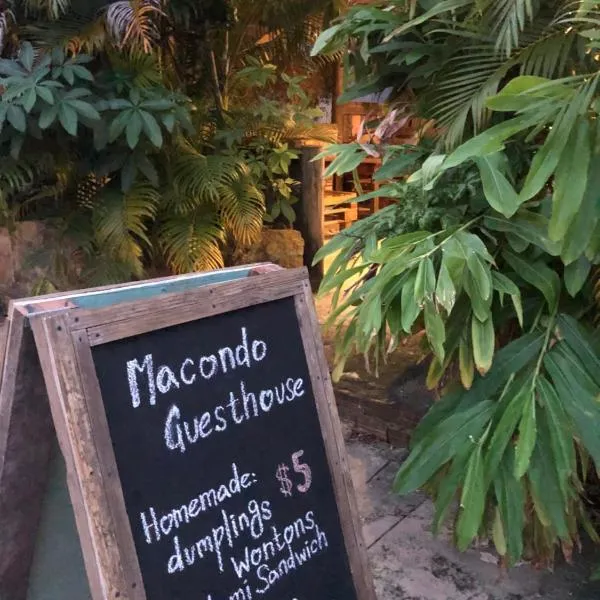 Macondo
Guesthouse
Homemade: $5
dumplings
Wontons
Sandwich